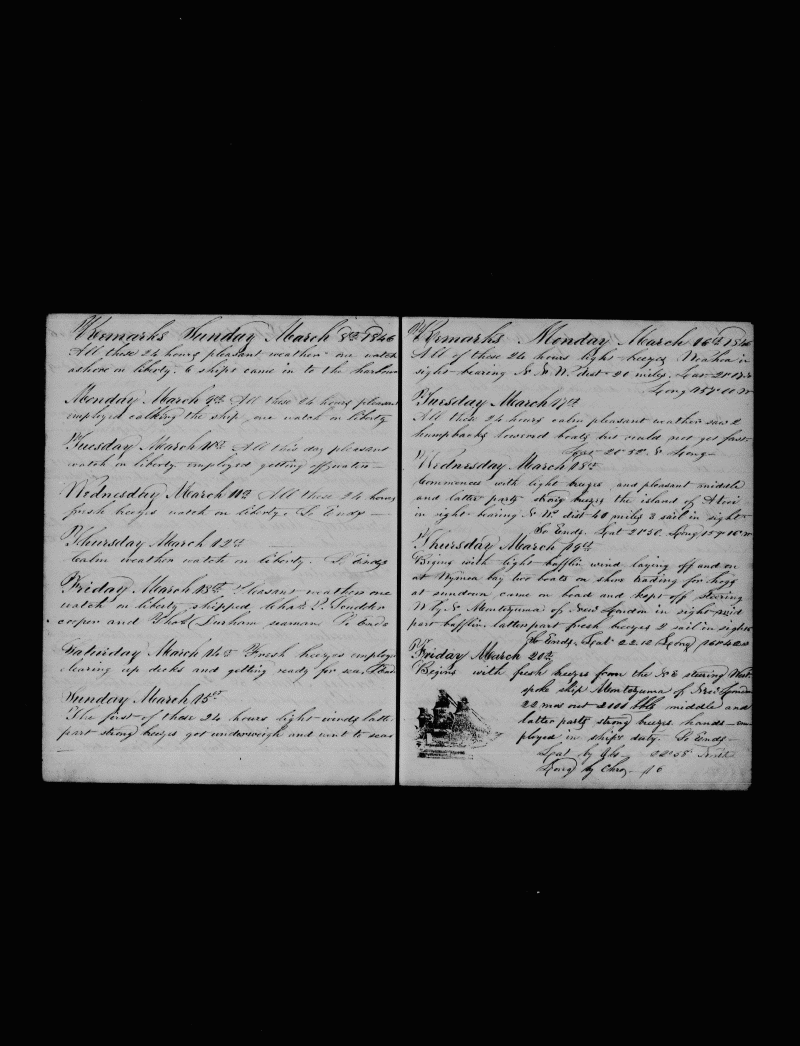 Remarks Sunday March 8th 1846
All these 24 hours pleasant weather one watch
ashore on liberty. 6 ships came in to the harbour
Monday March 9th All these 24 hours pleasant
employed calking the ship, one watch on liberty
Tuesday March 10th All this day pleasant
watch on liberty employed getting off water
Wednesday March 11th All these 24 hours
fresh breezes watch on liberty. So Ends
Thursday March 12th
Calm weather watch on liberty. So Ends
Friday March 13th Pleasant weather one
watch on liberty shipped Chas P.
cooper and Thos Durham seaman So Ends
Saturday March 14th Fresh breezes employed
clearing up decks and getting ready for sea, Ends
Sunday March 15th
The first of these 24 hours light winds latter
part strong breezes got underweigh and went to sea
Remarks Monday March 16th 1846
All of these 24 hours light breezes in
sight bearing dist 20 miles. Lat 21
Long 157 00 W
Tuesday March 17th
All these 24 hours calm pleasant weather saw 2
humpbacks lowered boats but could not get fast
Lat 21 52 & Long
Wednesday March 18th
Commences with light breezes and pleasant middle
and latter parts strong breezes the island of
in sight bearing dist 40 miles 3 sail in sight
So Ends. Lat 21 30. Long
Thursday March 19th
Begins with light bafflin wind laying off and on
at bay two boats on shore trading for hogs
at sundown came on board and kept off steering
W by N Montezuma of New London in sight mid
part bafflin latter part fresh breezes 2 sail in sight
So Ends. Lat 22.10 Long
Friday March 20th
Begins with fresh breezes from the N E steering West
spoke ship Montezuma of New London
22 mos out 2000 bbls middle and
latter parts strong breezes hands em
ployed in ships duty. So Ends
Lat by Obs 22°58 North
Long by Chro